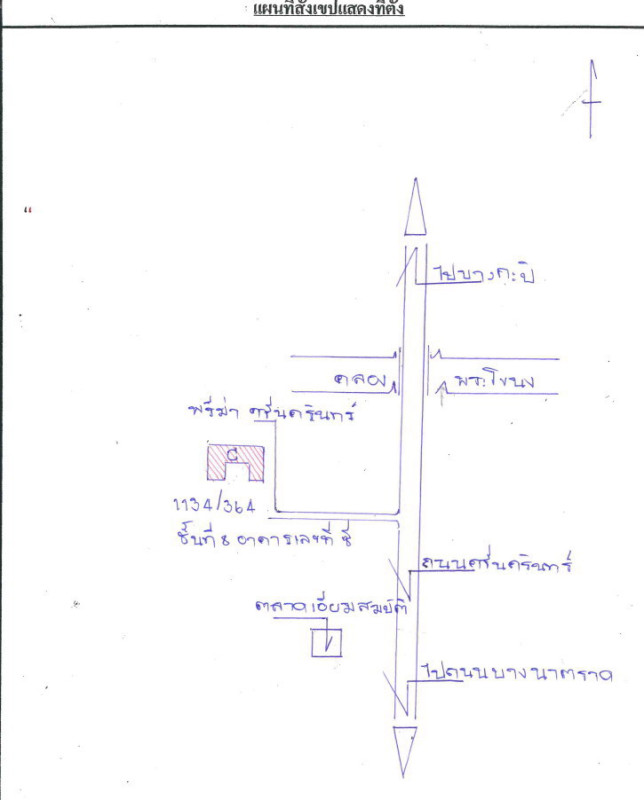 แผนที่สังเขปแสดงที่ตั้ง
"
ไปบางกะปิ
คลอง พระโขนง
พรีม่า ศรีนครินทร์
C
1134/364
ชั้นที่ 8 อาคารเลขที่ ซี
ถนนศรีนครินทร์
ตลาดเอี่ยมสมบัติ
ไปถนนบางนาตราด